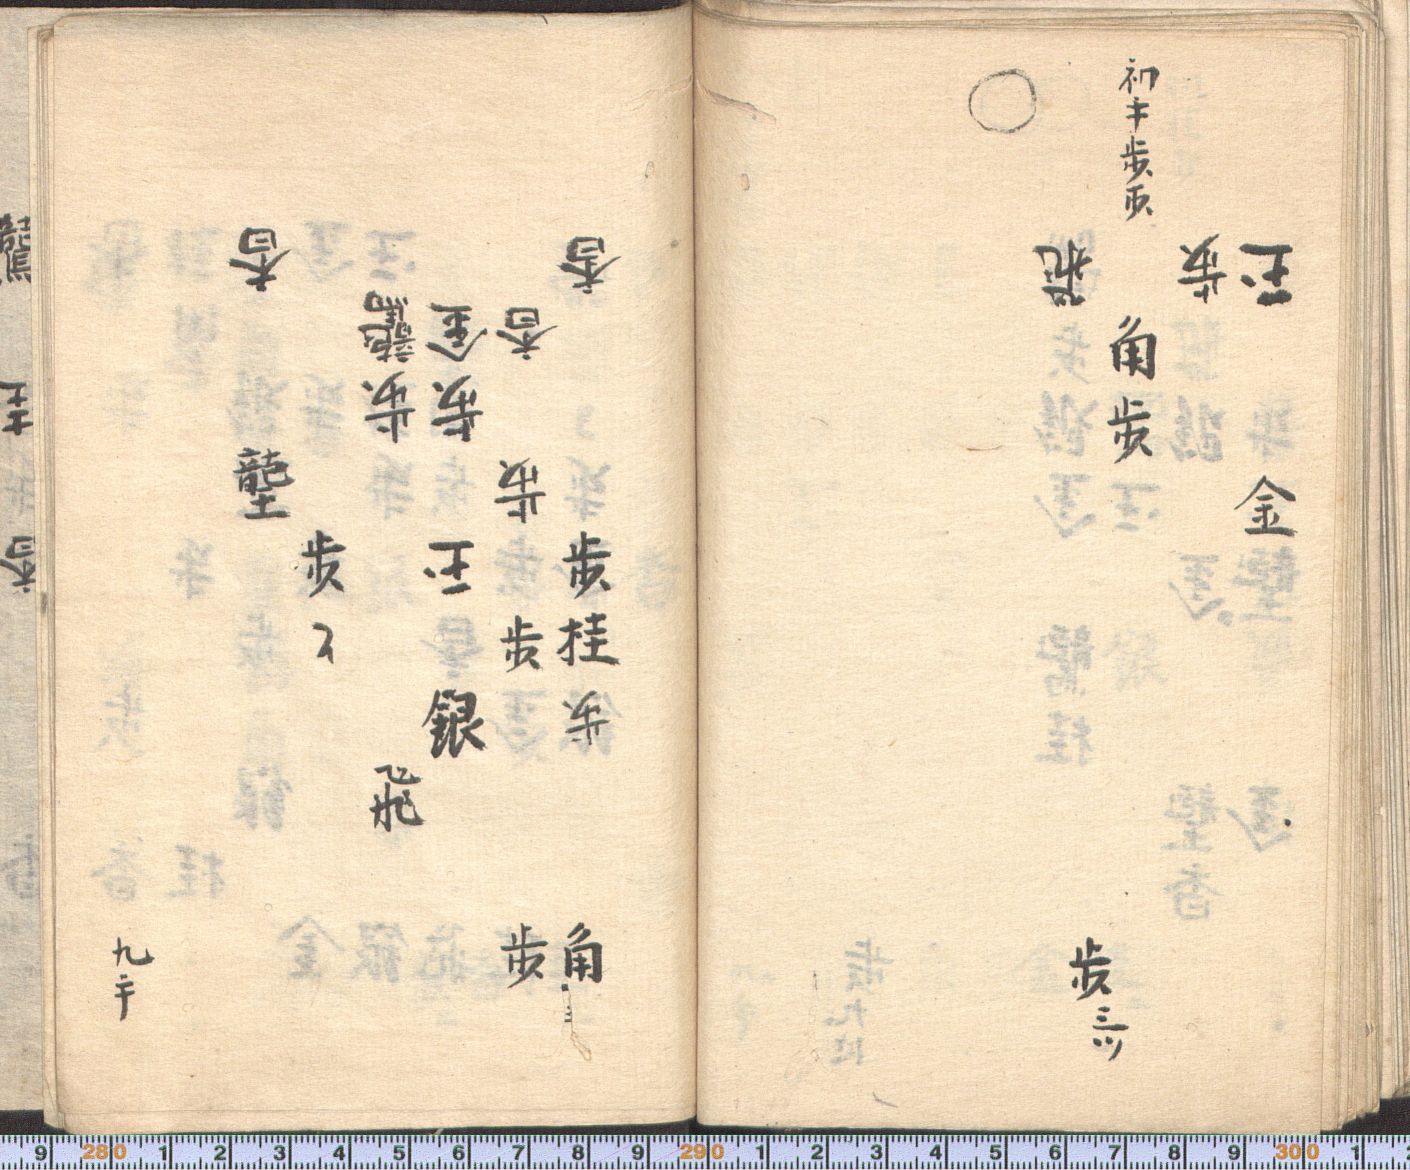 初十歩
玉 金 金
歩
角 歩
飛
歩 三ツ
香 歩 桂 歩 角 三
香 歩 歩 歩
金 歩 玉 銀
龍馬 歩 飛
歩
香 龍王
九
香
280 1 2 3 4 5 6 7 8 9 290 1 2 3 4 5 6 7 8 9 300 1